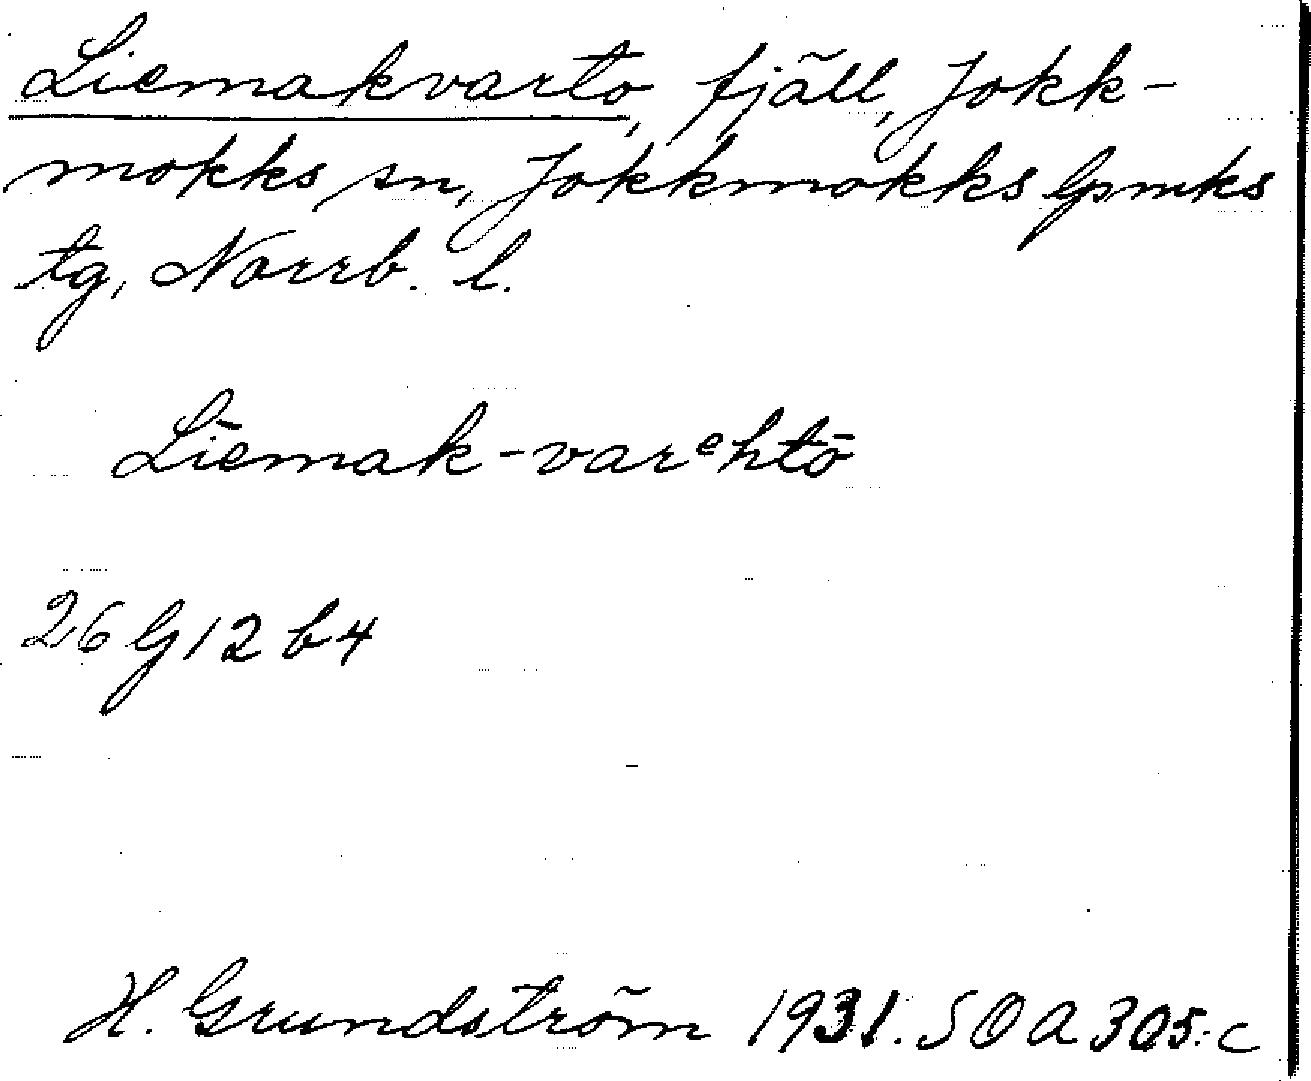 Liemakvarto, fjäll, Jokk-
mokks sn, Jokkmokks lpmks
tg, Norrb. l.
Līemak-varᵉhtō
26 G 12 b 4
H. Grundström 1931. SOA 305:c